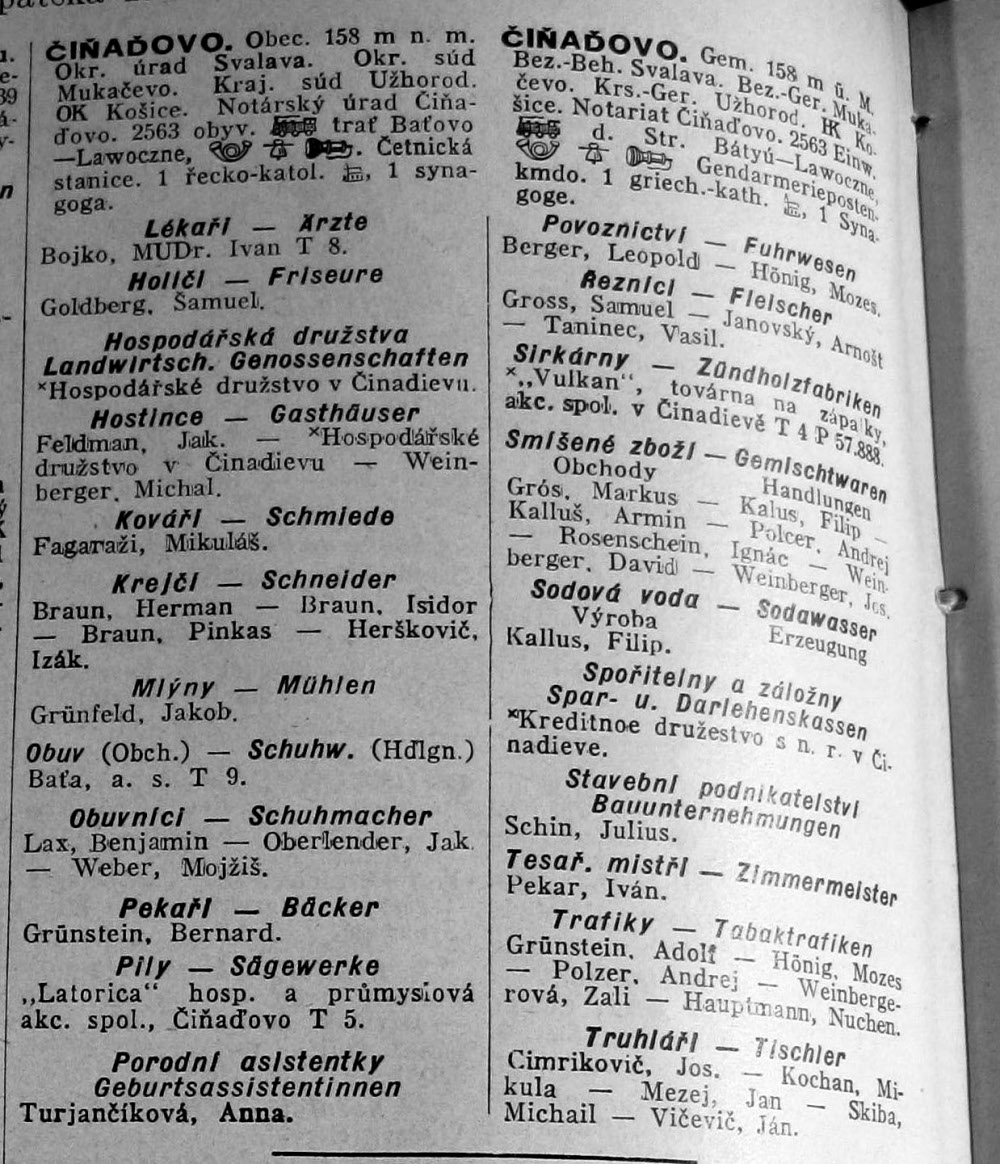 ČIŇAĎOVO. Obec. 158 m n. m.
Okr. úrad Svalava. Okr. súd
Mukačevo. Kraj. súd Užhorod.
OK Košice. Notárský úrad Čiňa-
ďovo. 2563 obyv. trať Baťovo
—Lawoczne, . Četnická
stanice. 1 řecko-katol. , 1 syna-
goga.
Lékaři — Ärzte
Bojko, MUDr. Ivan T 8.
Holiči — Friseure
Goldberg, Samuel.
Hospodářská družstva
Landwirtsch. Genossenschaften
×Hospodářské družstvo v Činadievu.
Hostince — Gasthäuser
Feldman, Jak. — ×Hospodářské
družstvo v Činadievu — Wein-
berger, Michal.
Kováři — Schmiede
Fagaraži, Mikuláš.
Krejčí — Schneider
Braun, Herman — Braun, Isidor
— Braun, Pinkas — Herškovič,
Izák.
Mlýny — Mühlen
Grünfeld, Jakob.
Obuv (Obch.) — Schuhw. (Hdlgn.)
Baťa, a. s. T 9.
Obuvníci — Schuhmacher
Lax, Benjamin — Oberlender, Jak.
— Weber, Mojžiš.
Pekaři — Bäcker
Grünstein, Bernard.
Pily — Sägewerke
„Latorica“ hosp. a průmyslová
akc. spol., Čiňaďovo T 5.
Porodní asistentky
Geburtsassistentinnen
Turjančíková, Anna.
ČIŇAĎOVO. Gem. 158 m ü. M.
Bez.-Beh. Svalava. Bez.-Ger. Muka-
čevo. Krs.-Ger. Užhorod. HK Ko-
šice. Notariat Čiňaďovo. 2563 Einw.
d. Str. Bátyú—Lawoczne,
Gendarmerieposten-
kmdo. 1 griech.-kath. , 1 Syna-
goge.
Povoznictví — Fuhrwesen
Berger, Leopold — Hönig, Mozes.
Řezníci — Fleischer
Gross, Samuel — Janovský, Arnošt
— Taninec, Vasil.
Sirkárny — Zündholzfabriken
×„Vulkan“, továrna na zápalky,
akc. spol. v Činadievě T 4 P 57.888.
Smíšené zboží — Gemischtwaren
Obchody Handlungen
Grós, Markus — Kalus, Filip —
Kalluš, Armin — Polcer, Andrej
— Rosenschein, Ignác — Wein-
berger, David — Weinberger, Jos.
Sodová voda — Sodawasser
Výroba Erzeugung
Kallus, Filip.
Spořitelny a záložny
Spar- u. Darlehenskassen
×Kreditnoe družestvo s n. r. v Či-
nadieve.
Stavební podnikatelství
Bauunternehmungen
Schin, Julius.
Tesař. mistři — Zimmermeister
Pekar, Iván.
Trafiky — Tabaktrafiken
Grünstein, Adolf — Hönig, Mozes
— Polzer, Andrej — Weinberge-
rová, Zali — Hauptmann, Nuchen.
Truhláři — Tischler
Cimrikovič, Jos. — Kochan, Mi-
kula — Mezej, Jan — Skiba,
Michail — Vičevič, Ján.